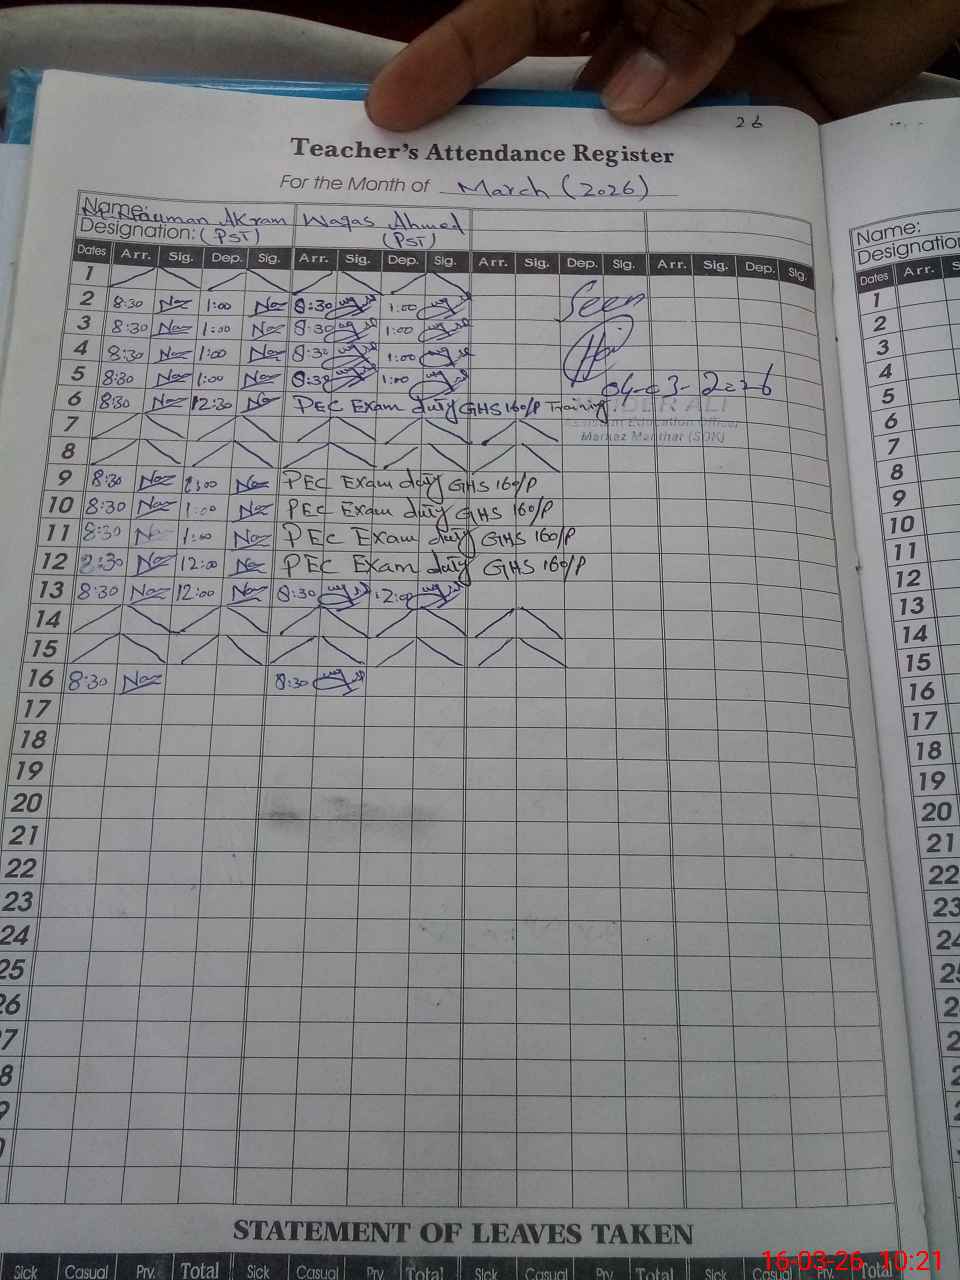 26
Teacher's Attendance Register
For the Month of March (2026)
Name: M. Nauman Akram Waqas Ahmed
Designation: (PST) (PST)
Dates Arr. Sig. Dep. Sig. Arr. Sig. Dep. Sig. Arr. Sig. Dep. Sig. Arr. Sig. Dep. Sig.
1
2 8:30 1:00 8:30 1:00 Seen
3 8:30 1:00 8:30 1:00
4 8:30 1:00 8:30 1:00
5 8:30 1:00 8:30 1:00 04-03-2026
6 8:30 12:30 PEC Exam duty GHS 160/P Training.
7
8
Assistant Education Officer
Markaz Manthar (SDK)
9 8:30 1:00 PEC Exam duty GHS 160/P
10 8:30 1:00 PEC Exam duty GHS 160/P
11 8:30 1:00 PEC Exam duty GHS 160/P
12 8:30 12:00 PEC Exam duty GHS 160/P
13 8:30 12:00 8:30 12:00
14
15
16 8:30 8:30
17
18
19
20
21
22
23
24
25
26
7
8
9
0
STATEMENT OF LEAVES TAKEN
Sick Casual Prv. Total Sick Casual Prv. Total Sick Casual Prv. Total Sick Casual Prv. Total
Name:
Designation
Dates Arr. S
1
2
3
4
5
6
7
8
9
10
11
12
13
14
15
16
17
18
19
20
21
22
23
24
25
2
2
2
2
16-03-26 10:21